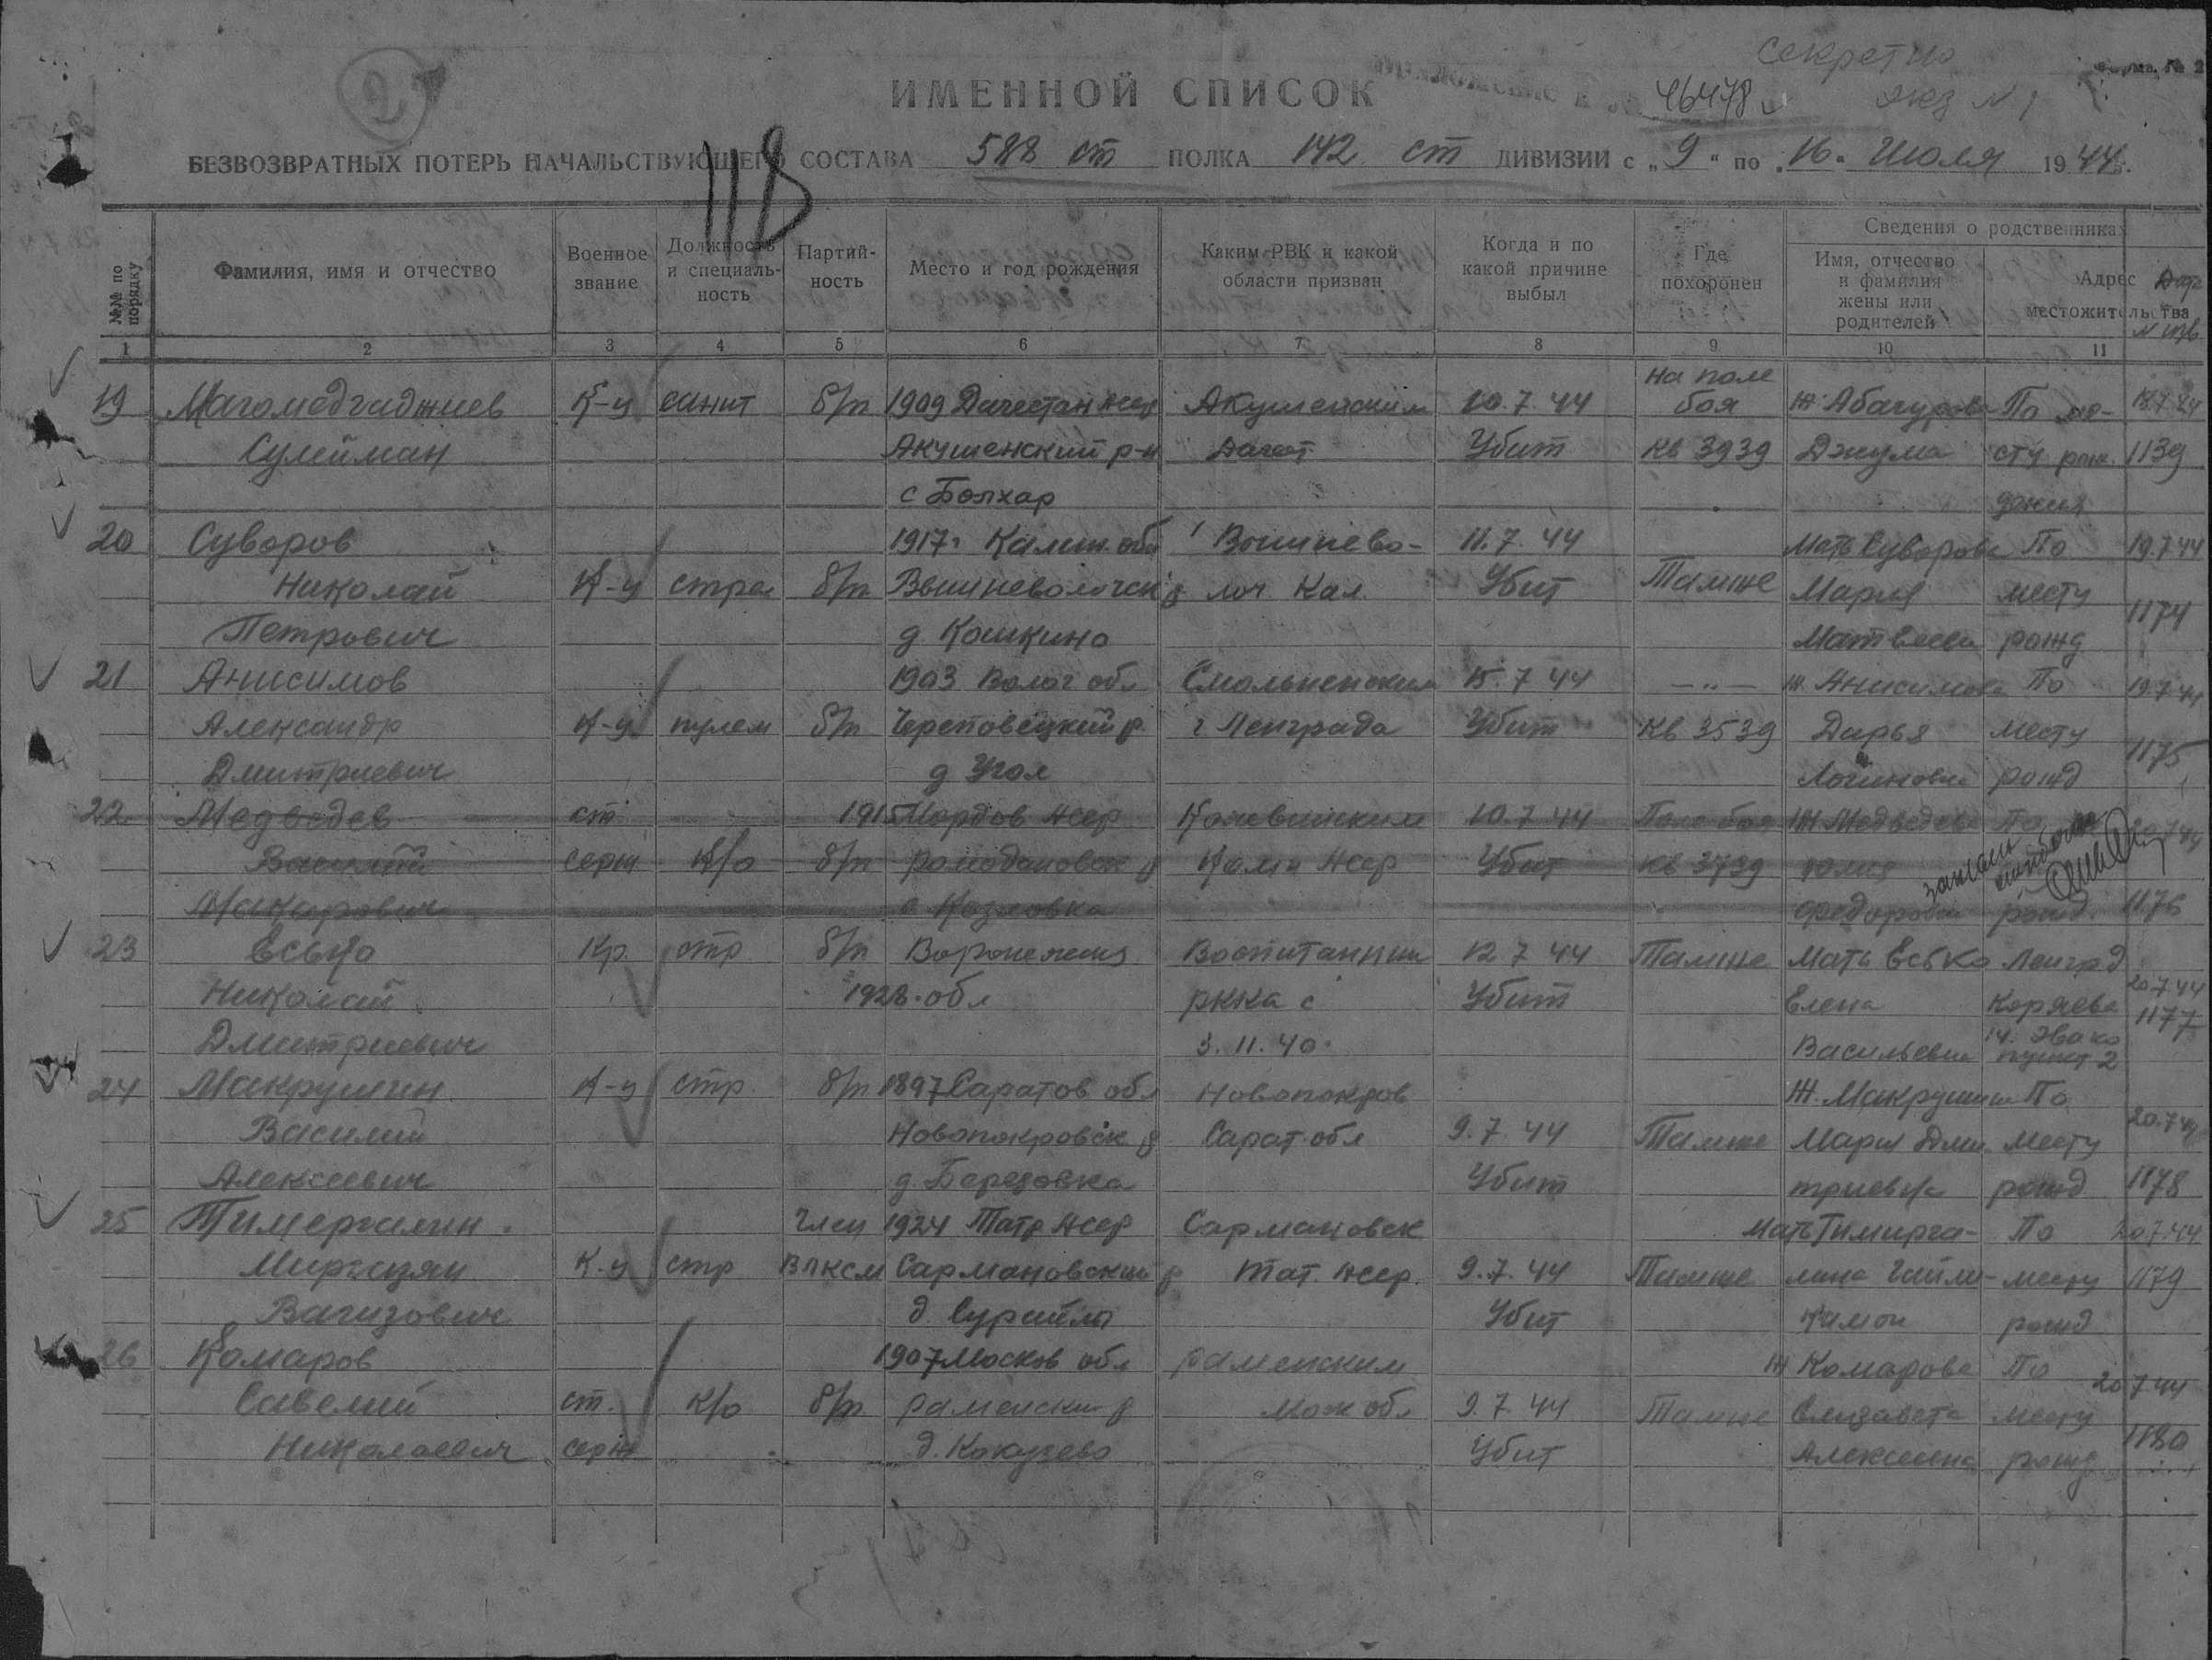 Секретно
Форма № 2
2
ИМЕННОЙ СПИСОК
46478
экз N 1
БЕЗВОЗВРАТНЫХ ПОТЕРЬ НАЧАЛЬСТВУЮЩЕГО СОСТАВА 588 сп ПОЛКА 142 сп ДИВИЗИИ с „9" по „16" Июля 1944 г.
118
№№ по порядку
Фамилия, имя и отчество
Военное звание
Должность и специальность
Партийность
Место и год рождения
Каким РВК и какой области призван
Когда и по какой причине выбыл
Где похоронен
Сведения о родственниках
Имя, отчество и фамилия жены или родителей
Адрес местожительства
N изв
1 2 3 4 5 6 7 8 9 10 11
на поле
19 Магомедгаджиев К-ц санит б/п 1909 Дагестан Асср Акушенским 10.7.44 боя ж. Абагурова По ме- 18.7.44
Сулейман Акушенский р-н Дагест Убит Кв 3939 Джума сту рож 1139
с Болхар дения
20 Суворов 1917г Калин. обл Вышнево- 11.7.44 Мать Суворова По 19.7.44
Николай К-ц стрел б/п Вышневолочск р лоч Кал. Убит Тамже Мария месту 1174
Петрович д Кошкино Матвеевн рожд
21 Анисимов 1903 Волог обл Смольненским 15.7.44 — " — ж Анисимова По 19.7.44
Александр К-ц пулем б/п Череповецкий р г Ленграда Убит Кв 3539 Дарья месту 1175
Дмитриевич д Угол Логиновна рожд
22 Медведев ст 1915 Мордов Асср 10.7.44 Поле боя Ж Медведева По 20.7.44
Василий серж К/о б/п ромодановск р Коми Асср Убит Кв 3739 Юлия
Макарович с Козловка Федоровн рожд. 1176
23 Есько Кр стр б/п Воронежская Воспитанник 12.7.44 Тамже Мать Есько Ленгрд
Николай 1928. обл ркка с Убит Елена 20.7.44
Дмитриевич 3.11.40. Васильевн пункт 2 1177
24 Макрушин К-ц стр. б/п 1897 Саратов обл Новопокров Ж. Макрушина По
Василий Новопокровск р Сарат. обл 9.7.44 Тамже Мария Дми месту 20.7.44
Алексеевич д. Березовка Убит триевна рожд 1178
25 Тимергалин Член 1924 Татр Асср Сармановск Мать Тимирга- По 20.7.44
Миргазян К-ц стр ВЛКСМ Сармановский р Тат. Асср. 9.7.44 Тамже лина месту 1179
Вагизович Убит рожд
26 Комаров 1907 Москов обл раменским ж Комарова По
Савелий ст. К/о б/п раменский р Мос обл 9.7.44 Тамже Елизавета месту 20.7.44
Николаевич серж д. Кокузево Убит Алексеевна рожд 1180